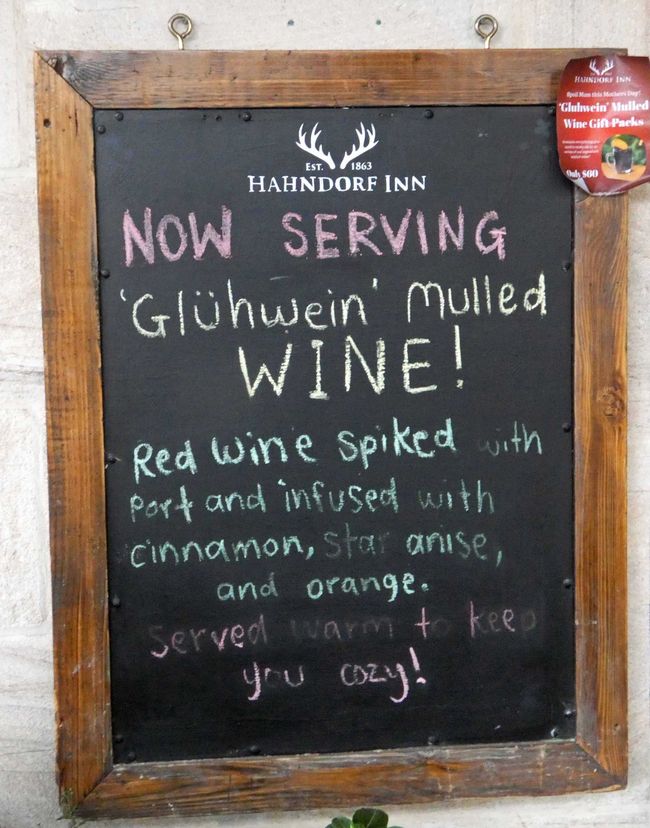 EST. 1863
HAHNDORF INN
NOW SERVING
'Glühwein' Mulled
WINE!
Red wine spiked with
Port and infused with
cinnamon, star anise,
and orange.
Served warm to keep
you cozy!
HAHNDORF INN
Spoil Mum this Mothers Day!
'Gluhwein' Mulled
Wine Gift Packs
Only $60